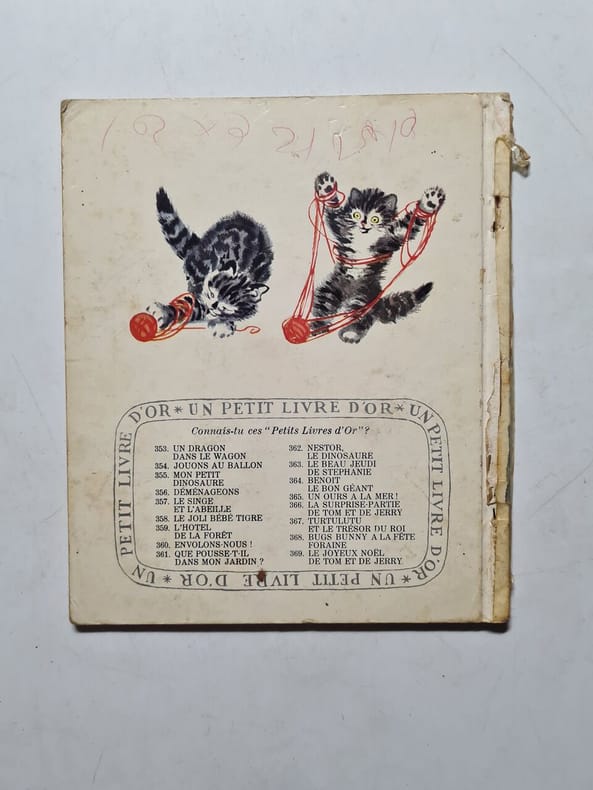 UN PETIT LIVRE D'OR * UN PETIT LIVRE D'OR * UN PETIT LIVRE D'OR * UN PETIT LIVRE D'OR *
Connais-tu ces "Petits Livres d'Or"?
353. UN DRAGON
DANS LE WAGON
354. JOUONS AU BALLON
355. MON PETIT
DINOSAURE
356. DÉMÉNAGEONS
357. LE SINGE
ET L'ABEILLE
358. LE JOLI BÉBÉ TIGRE
359. L'HOTEL
DE LA FORÊT
360. ENVOLONS-NOUS!
361. QUE POUSSE-T-IL
DANS MON JARDIN?
362. NESTOR,
LE DINOSAURE
363. LE BEAU JEUDI
DE STEPHANIE
364. BENOIT
LE BON GÉANT
365. UN OURS A LA MER!
366. LA SURPRISE-PARTIE
DE TOM ET DE JERRY
367. TURTULUTU
ET LE TRÉSOR DU ROI
368. BUGS BUNNY A LA FÊTE
FORAINE
369. LE JOYEUX NOËL
DE TOM ET DE JERRY